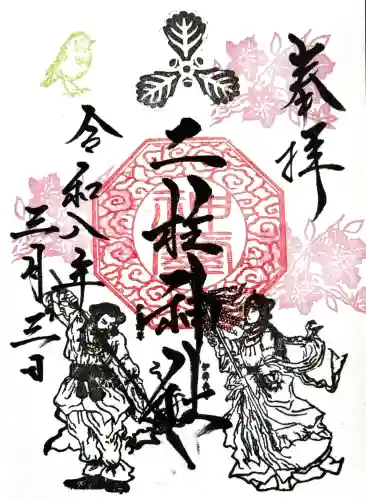 奉拝
二枝神社
令和八年
三月三日